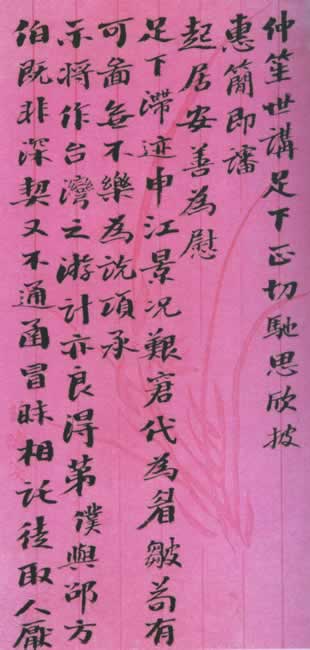 仲笙世講足下正切馳思欣披
惠簡即諗
起居安善為慰
足下滯迹申江景况艱窘代為眉皺苟有
可啚無不樂為説項承
示將作台灣之游計亦良得第僕與邵方
伯既非深契又不通函冒昧相託徒取人厭